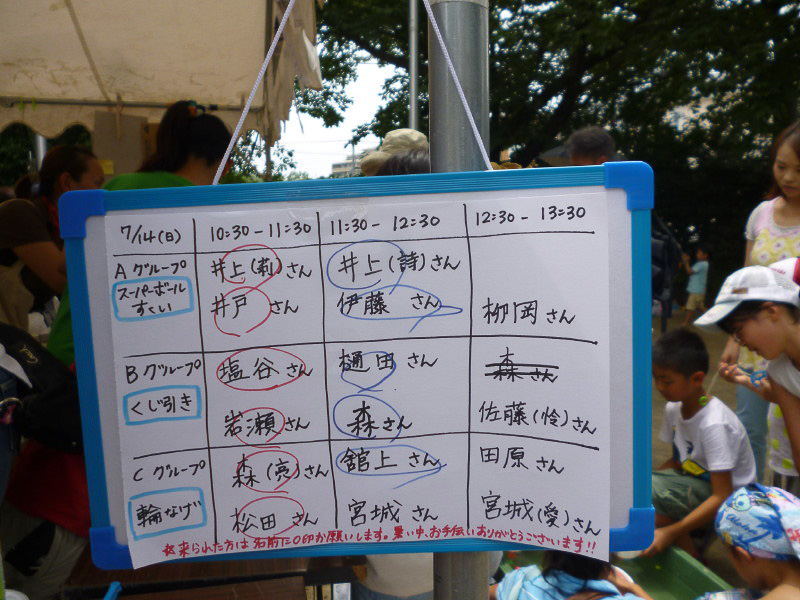 7/14(日) 10:30-11:30 11:30-12:30 12:30-13:30
Aグループ 井上(莉)さん 井上(詩)さん
スーパーボールすくい 井戸さん 伊藤さん 柳岡さん
Bグループ 塩谷さん 樋田さん 森さん
くじ引き 岩瀬さん 森さん 佐藤(怜)さん
Cグループ 森(亮)さん 舘上さん 田原さん
輪なげ 松田さん 宮城さん 宮城(愛)さん
☆来られた方は名前に○印お願いします。暑い中、お手伝いありがとうございます!!